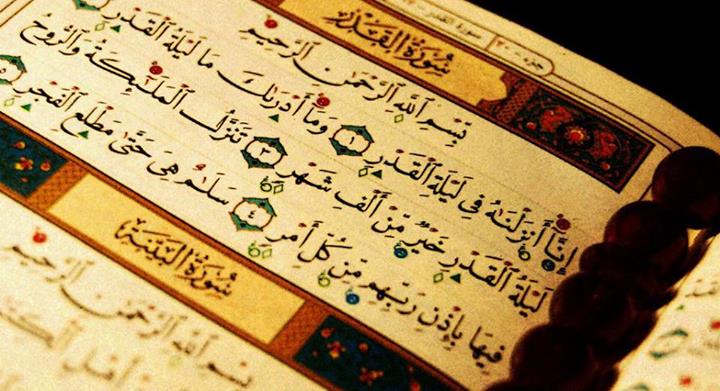 جزء ٣٠ سورة القدر
سُورَةُ الْقَدْرِ
بِسْمِ ٱللَّهِ ٱلرَّحْمَٰنِ ٱلرَّحِيمِ
إِنَّآ أَنزَلْنَٰهُ فِى لَيْلَةِ ٱلْقَدْرِ ١ وَمَآ أَدْرَىٰكَ مَا لَيْلَةُ ٱلْقَدْرِ
لَيْلَةُ ٱلْقَدْرِ خَيْرٌ مِّنْ أَلْفِ شَهْرٍ ٣ تَنَزَّلُ ٱلْمَلَٰٓئِكَةُ وَٱلرُّوحُ
فِيهَا بِإِذْنِ رَبِّهِم مِّن كُلِّ أَمْرٍ ٤ سَلَٰمٌ هِىَ حَتَّىٰ مَطْلَعِ ٱلْفَجْرِ ٥
سُورَةُ الْبَيِّنَةِ
بِسْمِ ٱللَّهِ ٱلرَّحْمَٰنِ ٱلرَّحِيمِ
أَهْلِ